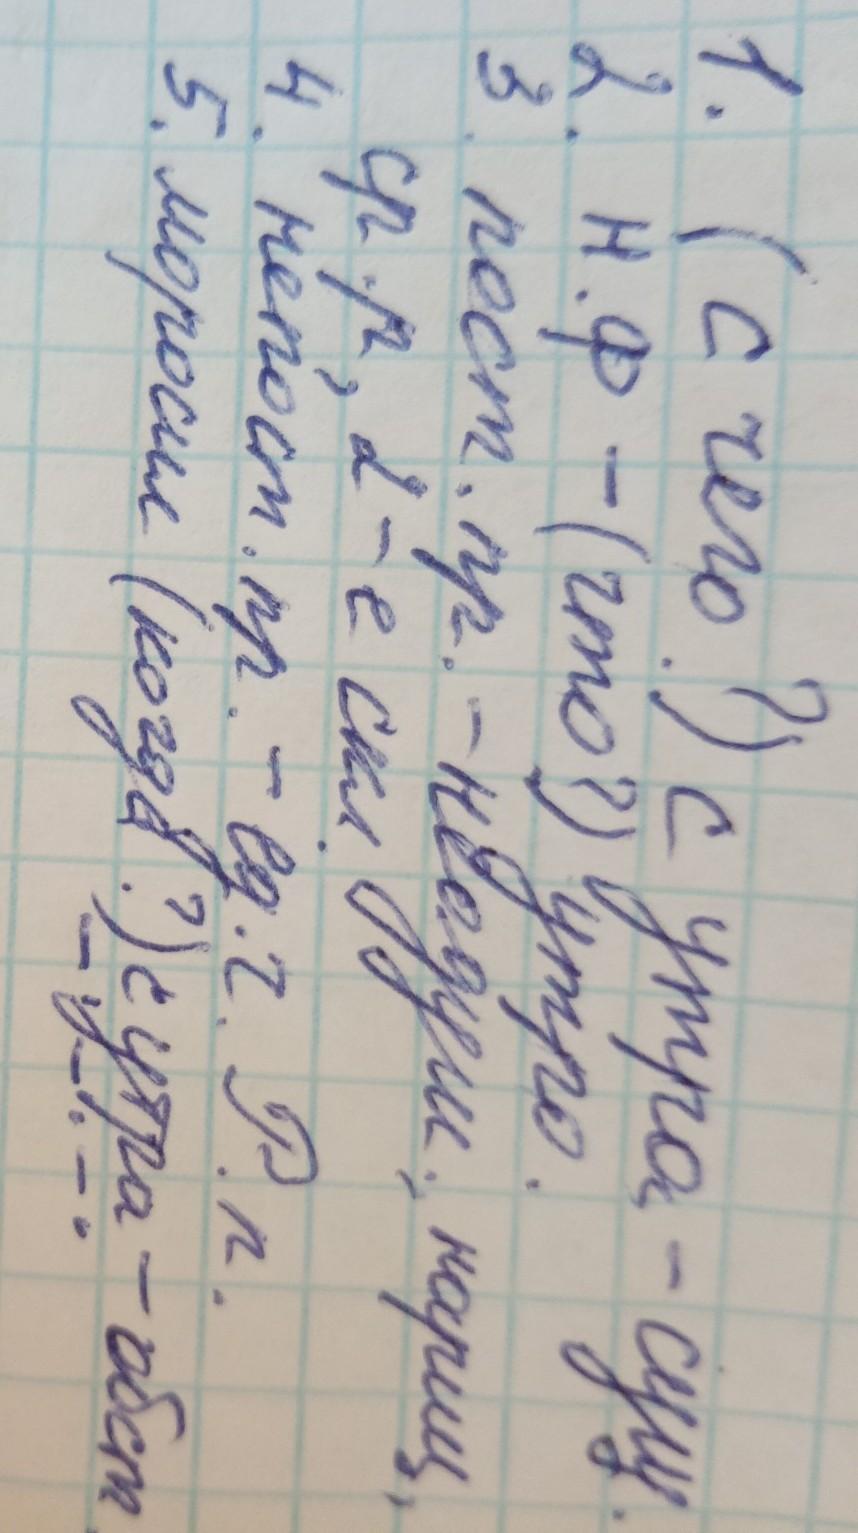 1. (с чего?) с утра - сущ.
2. н.ф - (что?) утро.
3. пост. пр. - неодуш., нариц,
ср.р, 2-е скл.
4. непост. пр. - ед.ч. Р.п.
5. моросил (когда?) с утра - обст.